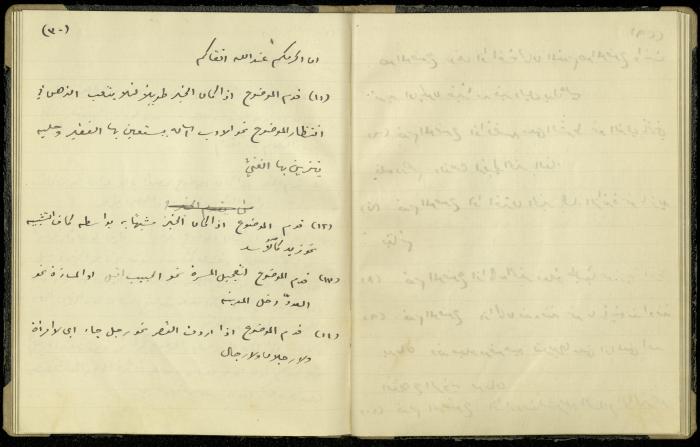 (٣٠)
ان اكرمكم عند الله اتقاكم
(١١) قدم الموضوع اذا كان الخبر طويلاً لئلا يتعب الذهن في
انتظار الموضوع نحو الادب آلة يستعين بها الفقير وحلية
يتزين بها الغني
(١٢) قدم الموضوع اذا كان الخبر مشبهًا به بواسطة كاف التشبيه
نحو زيد كالأسد
(١٣) قدم الموضوع لتعجيل المسرة نحو الحبيب اقبل او المساءة نحو
العدوّ دخل المدينة
(١٤) قدم الموضوع اذا اردت القصر نحو رجل جاء اي لا امرأة
ولا رجلان ولا رجال